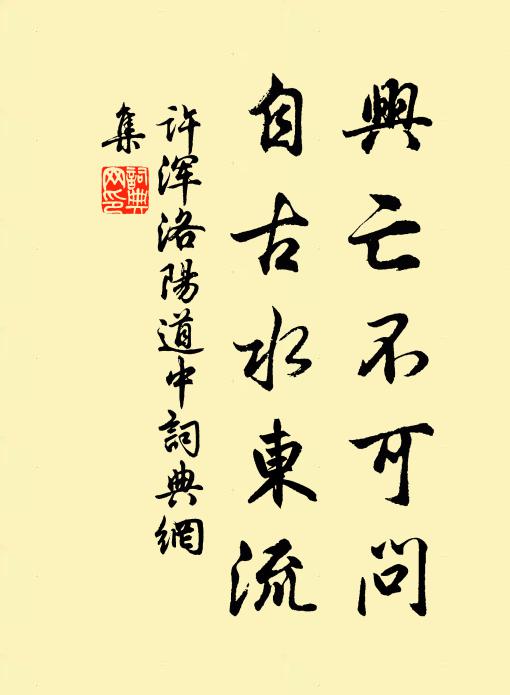 興亡不可問
自古水東流
许浑洛陽道中詞典網
集
詞典
网印